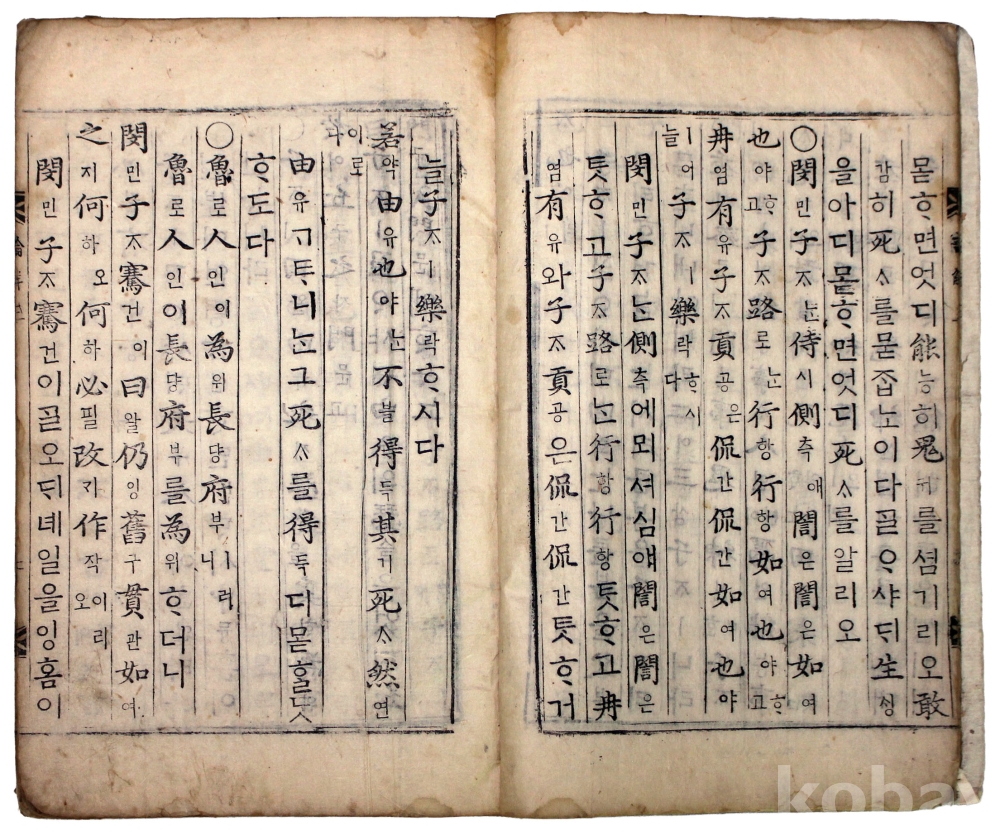 몯ᄒᆞ면엇디能능히鬼귀를셤기리오敢
감히死ᄉᆞ를묻ᄌᆞᆸ노이다ᄀᆞᆯᄋᆞ샤ᄃᆡ生ᄉᆡᆼ
을아디몯ᄒᆞ면엇디死ᄉᆞ를알리오
○閔민子ᄌᆞᄂᆞᆫ侍시側측애誾은誾은如여
也야ᄒᆞ고子ᄌᆞ路로ᄂᆞᆫ行항行항如여也야ᄒᆞ고
冉염有유子ᄌᆞ貢공은侃간侃간如여也야
ㅣ어늘子ᄌᆞㅣ樂락ᄒᆞ시다
閔민子ᄌᆞᄂᆞᆫ側측에뫼셔심애誾은誾은
ᄐᆞᆺᄒᆞ고子ᄌᆞ路로ᄂᆞᆫ行항行항ᄐᆞᆺᄒᆞ고冉
염有유와子ᄌᆞ貢공은侃간侃간ᄐᆞᆺᄒᆞ거
늘子ᄌᆞㅣ樂락ᄒᆞ시다
若약由유也야ᄂᆞᆫ不블得득其기死ᄉᆞ然연이로다
由유ᄀᆞᄐᆞ니ᄂᆞᆫ그死ᄉᆞ를得득디몯ᄒᆞᆯᄃᆞᆺ
ᄒᆞ도다
○魯로人인이為위長댱府부ㅣ러니
魯로人인이長댱府부를為위ᄒᆞ더니
閔민子ᄌᆞ騫건이曰왈仍잉舊구貫관如여
之지何하오何하必필改ᄀᆡ作작이리오
閔민子ᄌᆞ騫건이ᄀᆞᆯ오ᄃᆡ녜일을잉홈이
kobay